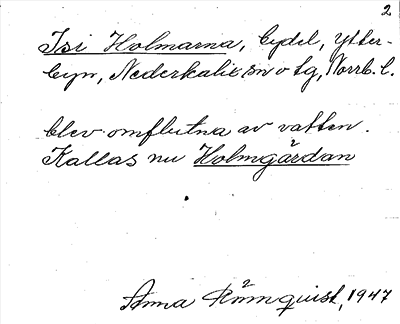 2
Isi Holmarna, bydel, Ytter-
byn, Nederkalix sn o tg, Norrb. l.
blev omflutna av vatten.
Kallas nu Holmgårdan
Anna Römquist, 1947